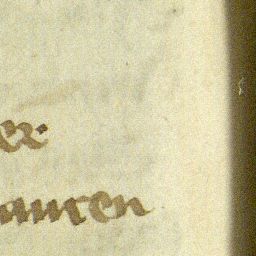 er
auren